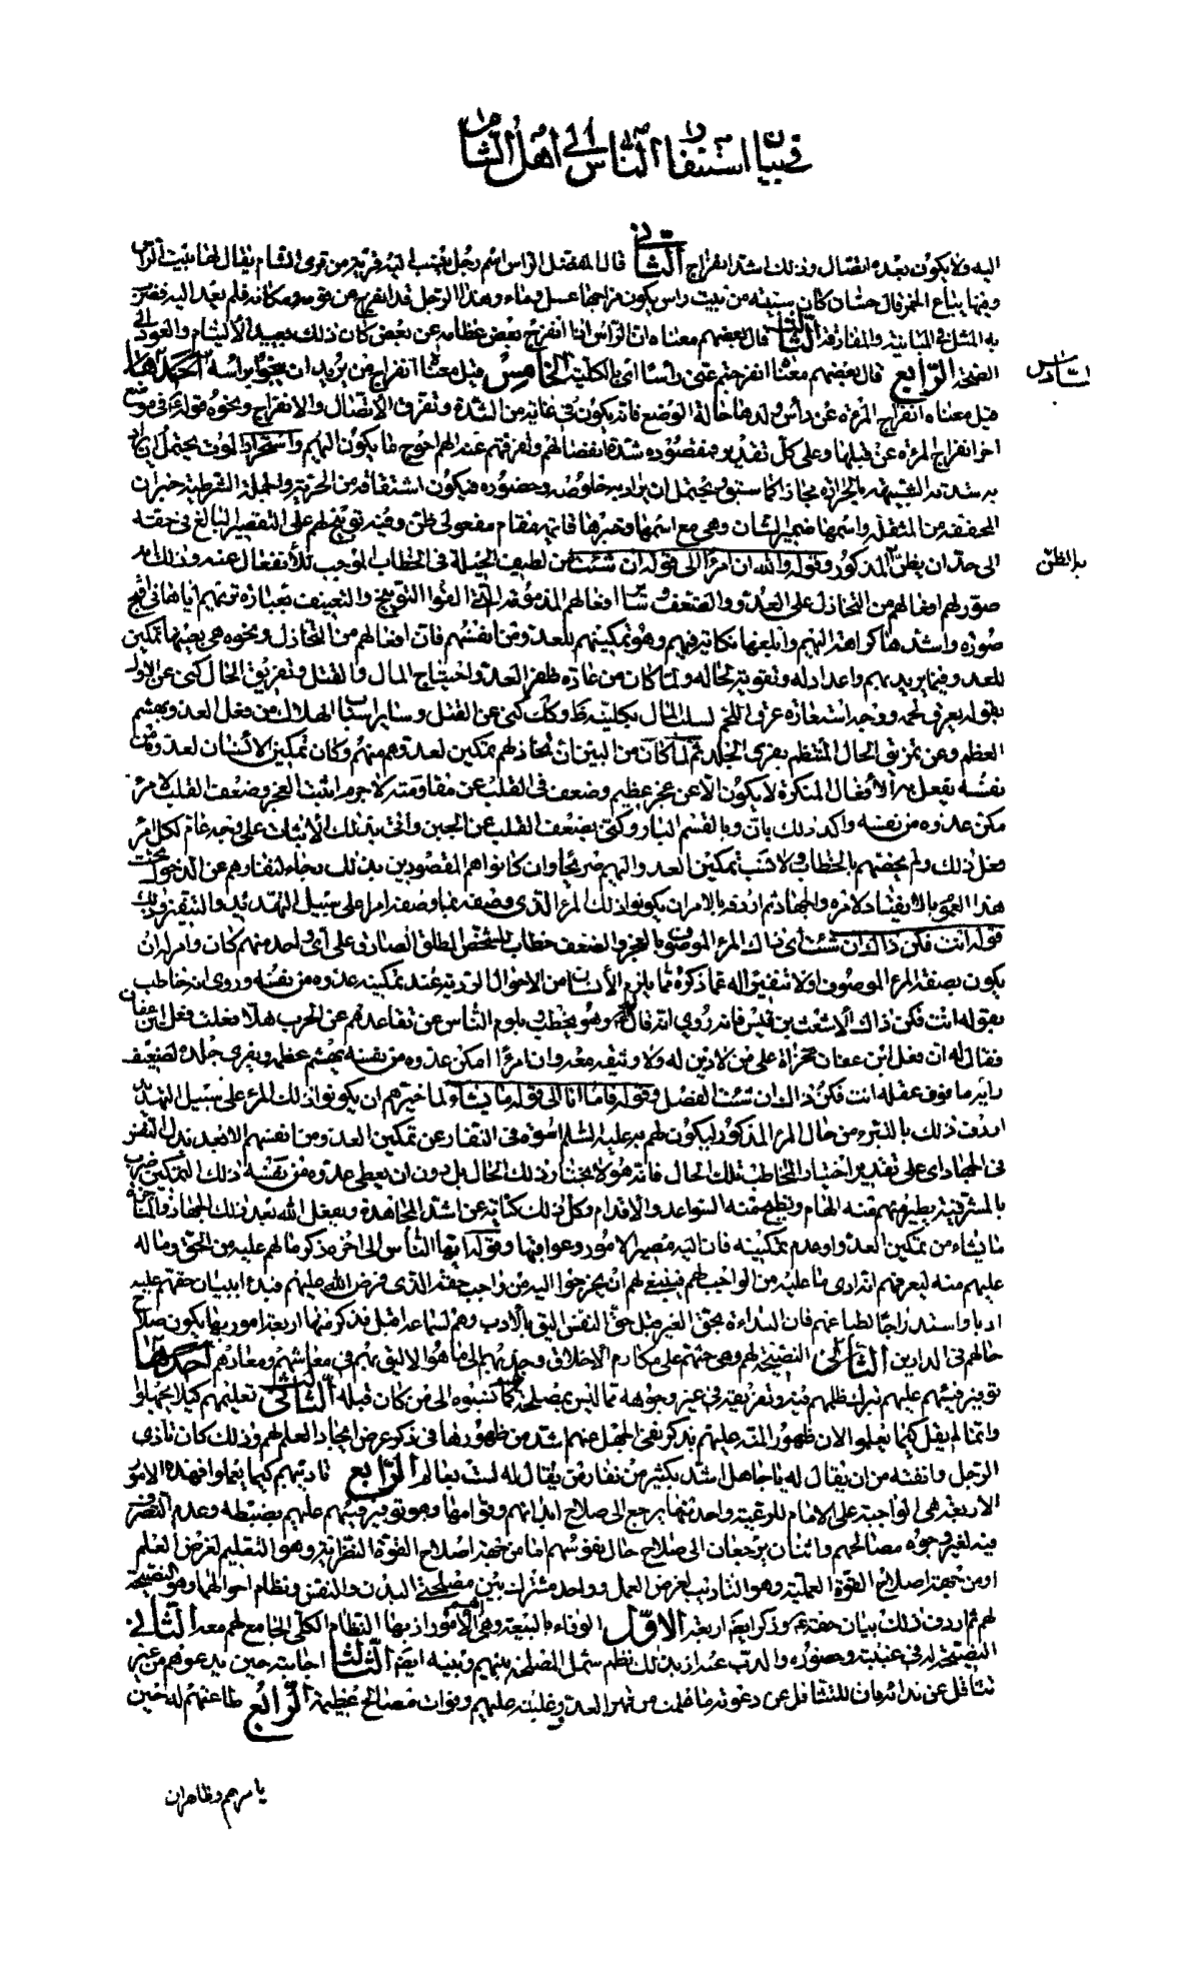 في بيان استنفار الناس الى اهل الشام
اليه ولا يكون بعده اتصال وذلك اشد انفراج الثاني قال المفضل الراس اسم رجل ينسب اليه قرية من قرى الشام يقال لها بيت الراس
وفيها يباع الخمر قال حسان كان سبيئة من بيت راس يكون مزاجها عسل وماء وهذا الرجل قد انفرج عن قومه ومكانه فلم يعد اليه فضرب
به المثل في المباينة والمفارقة الثالث قال بعضهم معناه ان الراس اذا انفرج بعض عظامه عن بعض كان ذلك بعيد الالتيام والعود الى
الصحة الرابع قال بعضهم معناه انفرجتم عني رأسا اى بالكلية الخامس قيل معناه انفراج من يريد ان ينجو براسه
السادس
قيل معناه انفراج المرءة عن رأس ولدها حالة الوضع فانه يكون في غاية من الشدة وتفرق الاتصال والانفراج ونحوه قوله في موضع
اخر انفراج المرءة عن قبلها وعلى كل تقدير فمقصوده شدة انفصالهم وتفرقهم عنه احوج ما يكون اليهم واستحرار الموت يحتمل ان يراد
به شدته الشبيهة بالحرارة مجازا كما سبق ويحتمل ان يراد به خلوصه وحضوره فيكون اشتقاقه من الحرية والجملة الشرطية خبر ان
المخففة من المثقلة واسمها ضمير الشان وهي مع اسمها وخبرها قائمة مقام مفعولى ظن وفيه توبيخ لهم على التقصير البالغ في حقه
الى حد ان يظن المذكور وقوله والله ان امرأ الى قوله ان شئت من لطيف الحيلة في الخطاب الموجب للانفعال عنه وذلك انه
بالظن
صور لهم افعالهم من التخاذل على العدو والضعف
صورة واشدها كراهة اليهم وابلغها نكاية فيهم وهو تمكينهم للعدو من انفسهم فان افعالهم من التخاذل ونحوه هي بعينها تمكين
للعدو فيما يريد بهم واعداد له وتقوية لحاله ولما كان من عادة ظفر العدو احتياج المال والقتل وتفريق الحال كنى عن الاول
بقوله يعرق لحمه ووجه استعارة عرق اللحم لسلب المال بكليته ظ وكذلك كنى عن القتل وساير اسباب الهلاك من فعل العدو بهشم
العظم وعن تمزيق الحال المنتظم بفرى الجلد ثم لما كان من البين ان تخاذلهم تمكين لعدوهم منهم وكان تمكين الانسان لعدوه من
نفسه يفعل به الافعال المنكرة لا يكون الا عن عجز عظيم وضعف في القلب عن مقاومته لاجرم اثبت العجز وضعف القلب لامرء
مكن عدوه من نفسه واكد ذلك بان وبالقسم البار وكنى بضعف القلب عن الجبن واتى بذلك الاثبات على وجه عام لكل امرء
فعل ذلك ولم يخصهم بالخطاب ولا نسب تمكين العدو اليهم صريحا وان كانوا هم المقصودين بذلك رجاء لنفارهم عن الدخول تحت
هذا العموم بالانقياد لامره والجهاد ثم اردفه بالامر ان يكونوا ذلك المرء الذي وصفه بما وصفه امرا على سبيل التهديد والتنفير وذلك
قوله انت فكن ذاك ان شئت اى ذاك المرء الموصوف بالعجز والضعف خطاب للشخص المطلق الصادق على اى واحد منهم كان وامر له ان
يكون بصفة المرء الموصوف اولا تنفيرا له عما ذكره مما يلزم الانسان من الاحوال الردية عند تمكينه عدوه من نفسه وروى انه خاطب
بقوله انت فكن ذاك الاشعث بن قيس فانه روي انه قال له وهو يخطب ويلوم الناس عن تقاعدهم عن الحرب هلا فعلت فعل ابن عفان
فقال له ان فعل ابن عفان مخزاة على من لا دين له ولا وثيقة معه وان امرأ امكن عدوه من نفسه يهشم عظمه ويفرى جلده لضعيف
رايه مافون عقله انت فكن ذاك ان شئت الفصل وقوله فاما انا الى قوله ما يشاء لما خيرهم ان يكونوا ذلك المرء على سبيل التهديد
اردف ذلك بالتبرء من حال المرء المذكور ليكون لهم به عليه السلم اسوة في النفار عن تمكين العدو من انفسهم
في الجهاد اى على تقدير اختيار المخاطب تلك الحال فانه هو لا يختار ذلك الحال بل دون ان يعطى عدوه من نفسه ذلك التمكين ضرب
بالمشرفية يطير منه الهام وتطيح منه السواعد والاقدام وكل ذلك كناية عن اشد المجاهدة ويفعل الله بعد ذلك الجهاد والمناجزة
ما يشاء من تمكين العدو او عدم تمكينه فان اليه مصير الامور وعواقبها وقوله ايها الناس الى اخره ذكر ما لهم عليه من الحق وما له
عليهم منه ليعرفهم انه ادى ما عليه من الواجب لهم فينبغي لهم ان يخرجوا اليه من واجب حقه الذي فرض الله عليهم فبدء ببيان حقهم عليه
ادبا واستدراجا لطباعهم فان البداءة بحق الغير قبل حق النفس اليق بالادب وهم لسماعه اقبل فذكر منها اربعة امور بها يكون صلاح
حالهم في الدارين الثاني النصيحة لهم وهي حثهم على مكارم الاخلاق وجذبهم الى ما هو الاليق بهم في معاشهم ومعادهم احدها
توفير فيئهم عليهم بترك ظلمهم فيه وتفريقه في غير وجوهه مما ليس بمصلحة كما نسبوه الى من كان قبله الثالث تعليمهم كيلا يجهلوا
وانما لم يقل كيما يعلموا لان ظهور المنة عليهم بذكر نفى الجهل عنهم اشد من ظهورها في ذكر عرض ايجاد العلم لهم ولذلك كان تاذى
الرجل وانفته من ان يقال له يا جاهل اشد بكثير من نفاره من يقال له لست بعالم الرابع تاديبهم كيما يعملوا فهذه الامور
الاربعة هي الواجبة على الامام للرعية واحد منها يرجع الى صلاح ابدانهم وقوامها وهو توفير فيئهم عليهم بضبطه وعدم التصرف
فيه لغير وجوه مصالحهم واثنان يرجعان الى صلاح حال نفوسهم اما من جهة اصلاح القوة النظرية وهو التعليم لغرض العلم
او من جهة اصلاح القوة العملية وهو التاديب لغرض العمل وواحد مشترك بين مصلحتى البدن والنفس ونظام احوالهما وهو النصيحة
لهم ثم اردف ذلك ببيان حقه عليهم وذكر ايضا اربعة الاول الوفاء بالبيعة وهي اهم الامور اذ بها النظام الكلى الجامع لهم معه الثاني
النصيحة له في غيبته وحضوره والذب عنه اذ بذلك نظم شمل المصلحة بينهم وبينه ايضا الثالث اجابته حين يدعوهم من غير
تثاقل عن ندائه فان للتثاقل عن دعوته ما علمت من قهر العدو وغلبته عليهم وفوات مصالح عظيمة الرابع طاعتهم له حين
يامرهم وظاهر ان